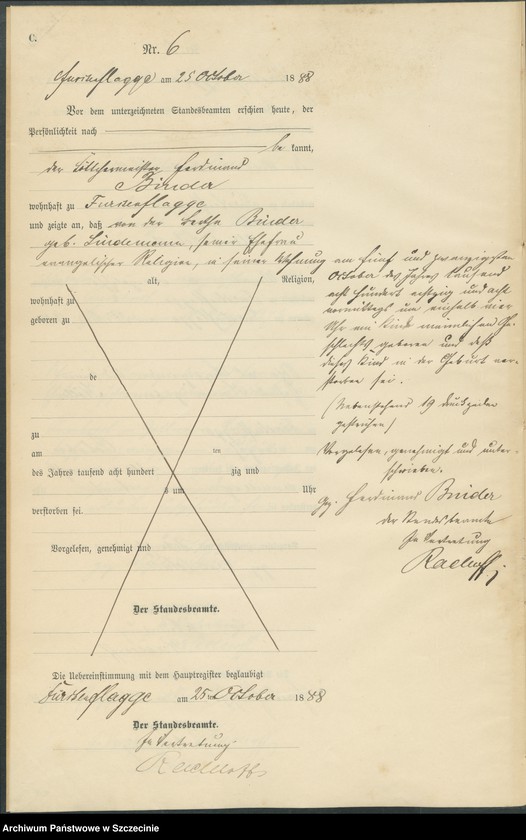 C.
Nr. 6
Furkenflagge am 25 October 1888
Vor dem unterzeichneten Standesbeamten erschien heute, der
Persönlichkeit nach
be kannt,
der Böttchermeister Ferdinand
Binder
wohnhaft zu Furkenflagge
und zeigte an, daß von der Bertha Binder
geb. Lindemann, seiner Ehefrau
evangelischer Religion, in seiner Wohnung am fünf und zwanzigsten
October des Jahres tausend
acht hundert achtzig und acht
vormittags um einhalb vier
Uhr ein Kind männlichen Ge-
schlechts geboren und daß
dieses Kind in der Geburt ver-
storben sei.
(Nebenstehend 19 Druckzeilen
gestrichen)
Vorgelesen, genehmigt und unter-
schrieben.
gez. Ferdinand Binder
der Standesbeamte
In Vertretung
Radloff
alt, Religion,
wohnhaft zu
geboren zu
de
zu
am ten
des Jahres tausend acht hundert zig und
s um Uhr
verstorben sei.
Vorgelesen, genehmigt und
Der Standesbeamte.
Die Uebereinstimmung mit dem Hauptregister beglaubigt
Furkenflagge am 25 ten October 1888
Der Standesbeamte.
In Vertretung
Radloff
Archiwum Państwowe w Szczecinie